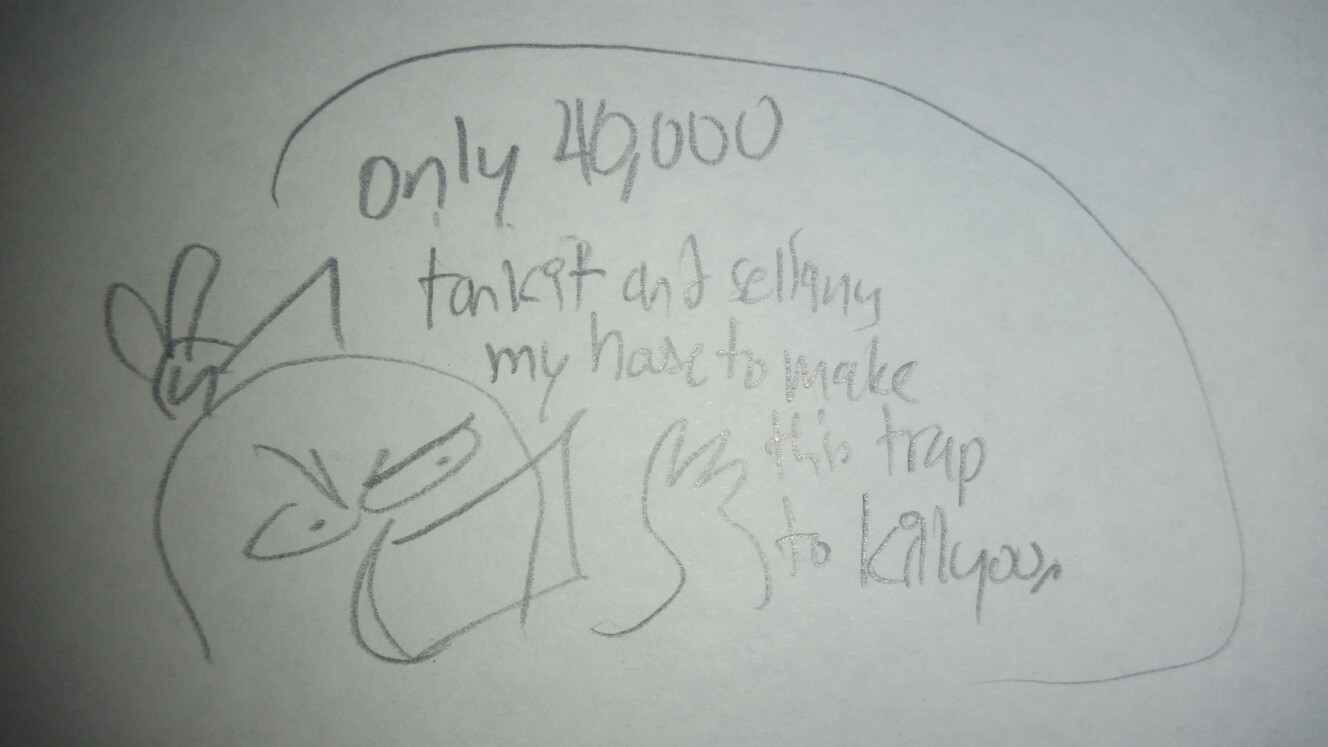 only 40,000
tonkit and selling
my hase to make
this trap
to kill you